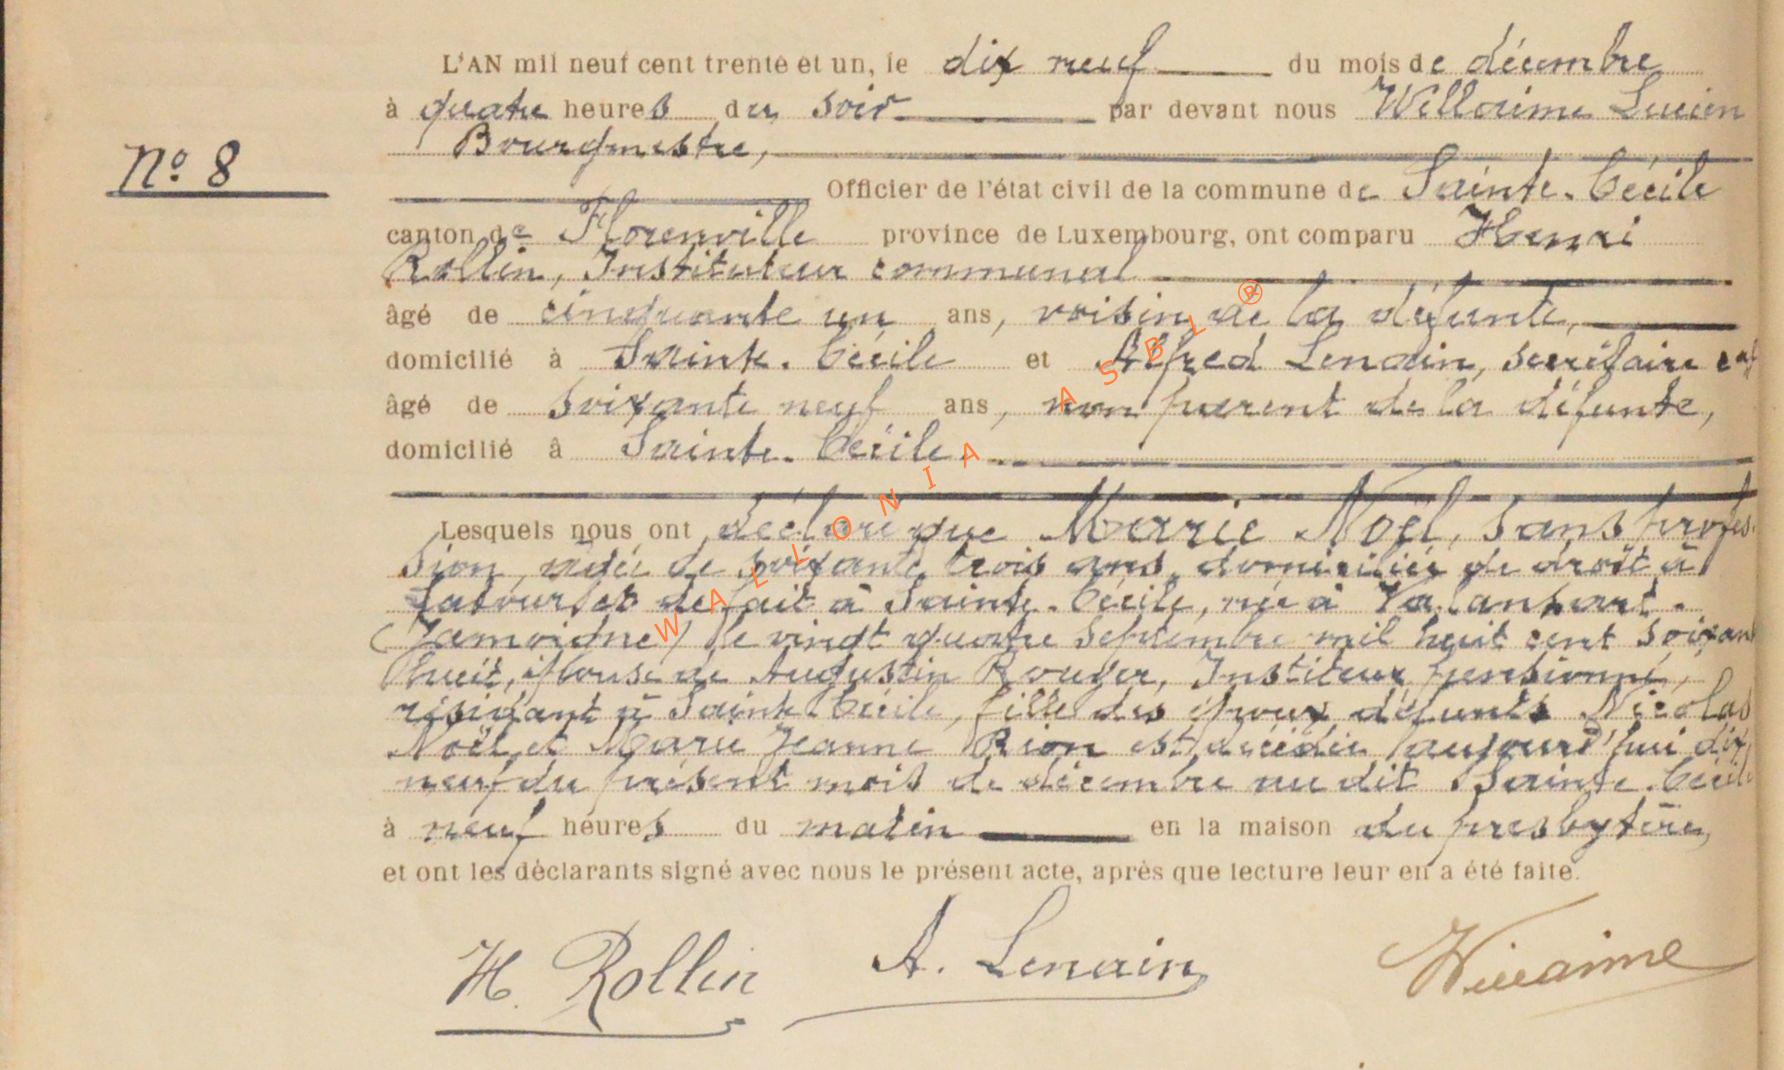 L'AN mil neuf cent trente et un, le dix neuf du mois de décembre
à quatre heures du soir par devant nous Willaime Lucien
Bourgmestre,
No 8
Officier de l'état civil de la commune de Sainte-Cécile
canton de Florenville province de Luxembourg, ont comparu Henri
Rollin, Instituteur communal
âgé de cinquante un ans, voisin de la défunte,
domicilié à Sainte-Cécile et Alfred Lenain, secrétaire
âgé de soixante neuf ans, non parent de la défunte,
domicilié à Sainte-Cécile.
Lesquels nous ont déclaré que Marie Noël, sans profes-
sion, âgée de soixante trois ans, domiciliée de droit à
et de fait à Sainte-Cécile, née à Valansart-
(Jamoigne) le vingt quatre septembre mil huit cent soixante
huit, épouse de Augustin Instituteur pensionné,
résidant à Sainte Cécile, fille des époux défunts Nicolas
Noël et Marie Jeanne Rion est décédée aujourd'hui dix
neuf du présent mois de décembre au dit Sainte-Cécile
à neuf heures du matin en la maison du presbytère,
et ont les déclarants signé avec nous le présent acte, après que lecture leur en a été faite.
H. Rollin A. Lenain Willaime
WALLONIA ASBL ®